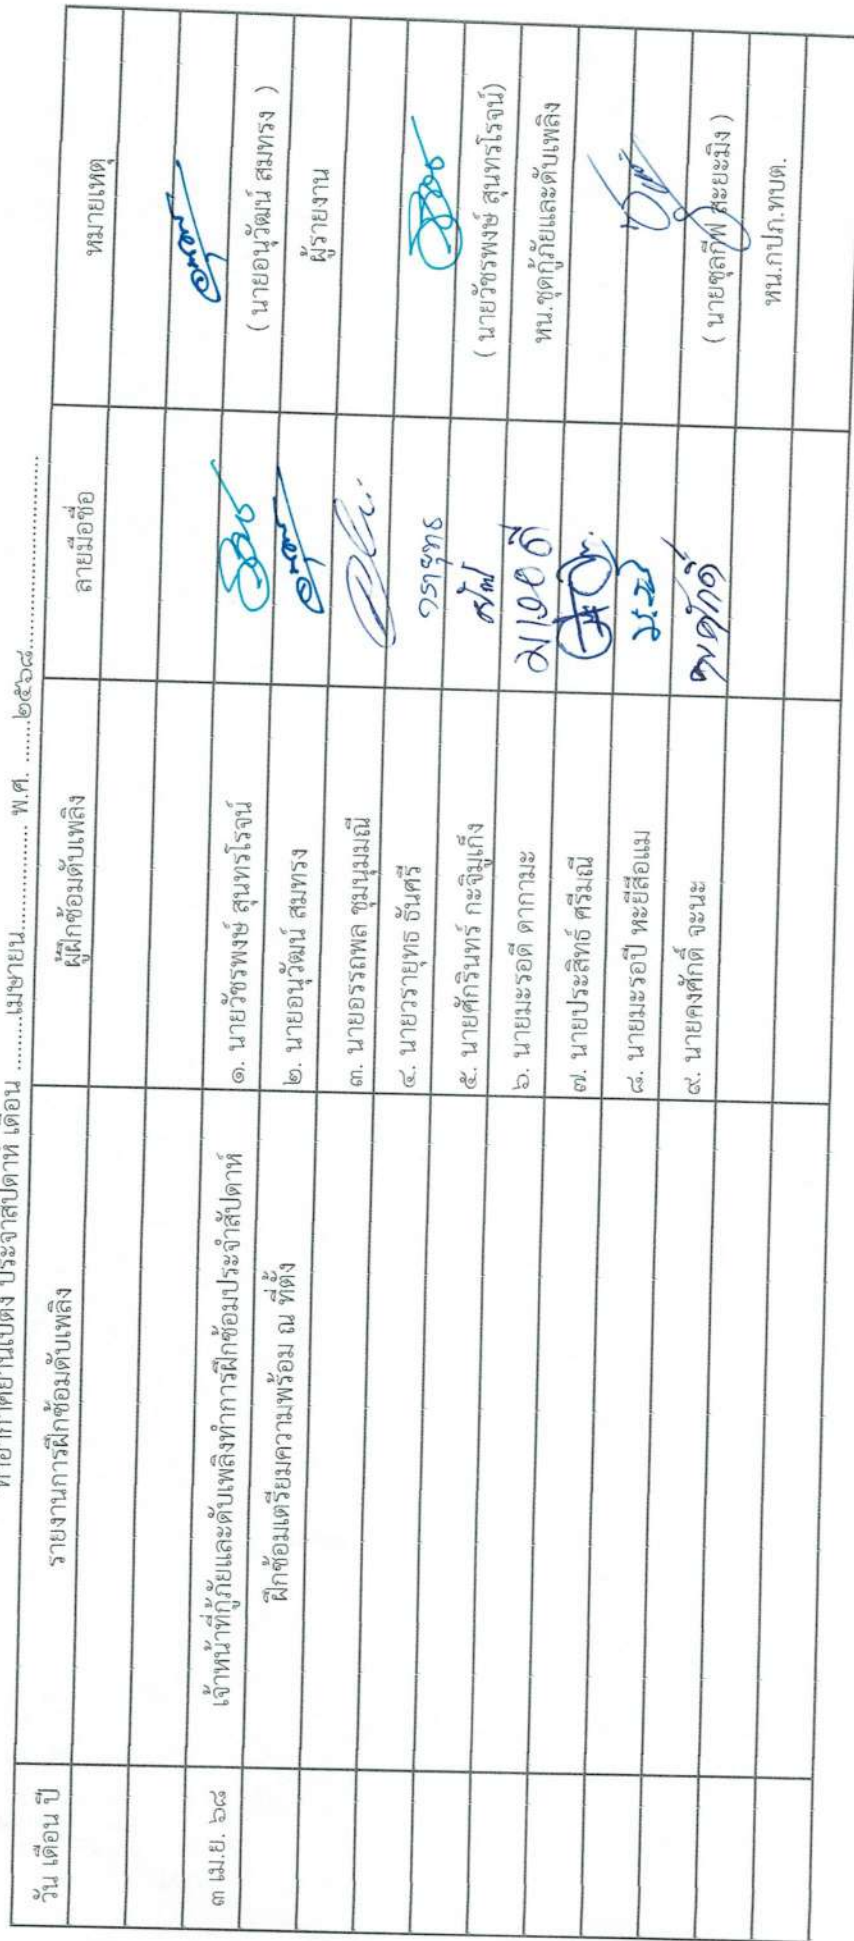 ท่าอากาศยานเบตง ประจำสัปดาห์ เดือน .........เมษายน................... พ.ศ. ........๒๕๖๘................................
วัน เดือน ปี รายงานการฝึกซ้อมดับเพลิง ผู้ฝึกซ้อมดับเพลิง ลายมือชื่อ หมายเหตุ
๓ เม.ย. ๖๘ เจ้าหน้าที่กู้ภัยและดับเพลิงทำการฝึกซ้อมประจำสัปดาห์ ๑. นายวัชรพงษ์ สุนทรโรจน์
( นายอนุวัฒน์ สมทรง )
ฝึกซ้อมเตรียมความพร้อม ณ ที่ตั้ง ๒. นายอนุวัฒน์ สมทรง ผู้รายงาน
๓. นายอรรถพล ชุมนุมมณี
๔. นายวรายุทธ ธันศรี วรายุทธ
๕. นายศักรินทร์ กะจิมูเก็ง ( นายวัชรพงษ์ สุนทรโรจน์)
๖. นายมะรอดี ดากามะ มะรอดี หน.ชุดกู้ภัยและดับเพลิง
๗. นายประสิทธ์ ศรีมณี
๘. นายมะรอปี หะยีสือแม
๙. นายคงศักดิ์ จะนะ คงศักดิ์ ( นายซุลกีฟ สะยะมิง )
หน.กปภ.ทบต.